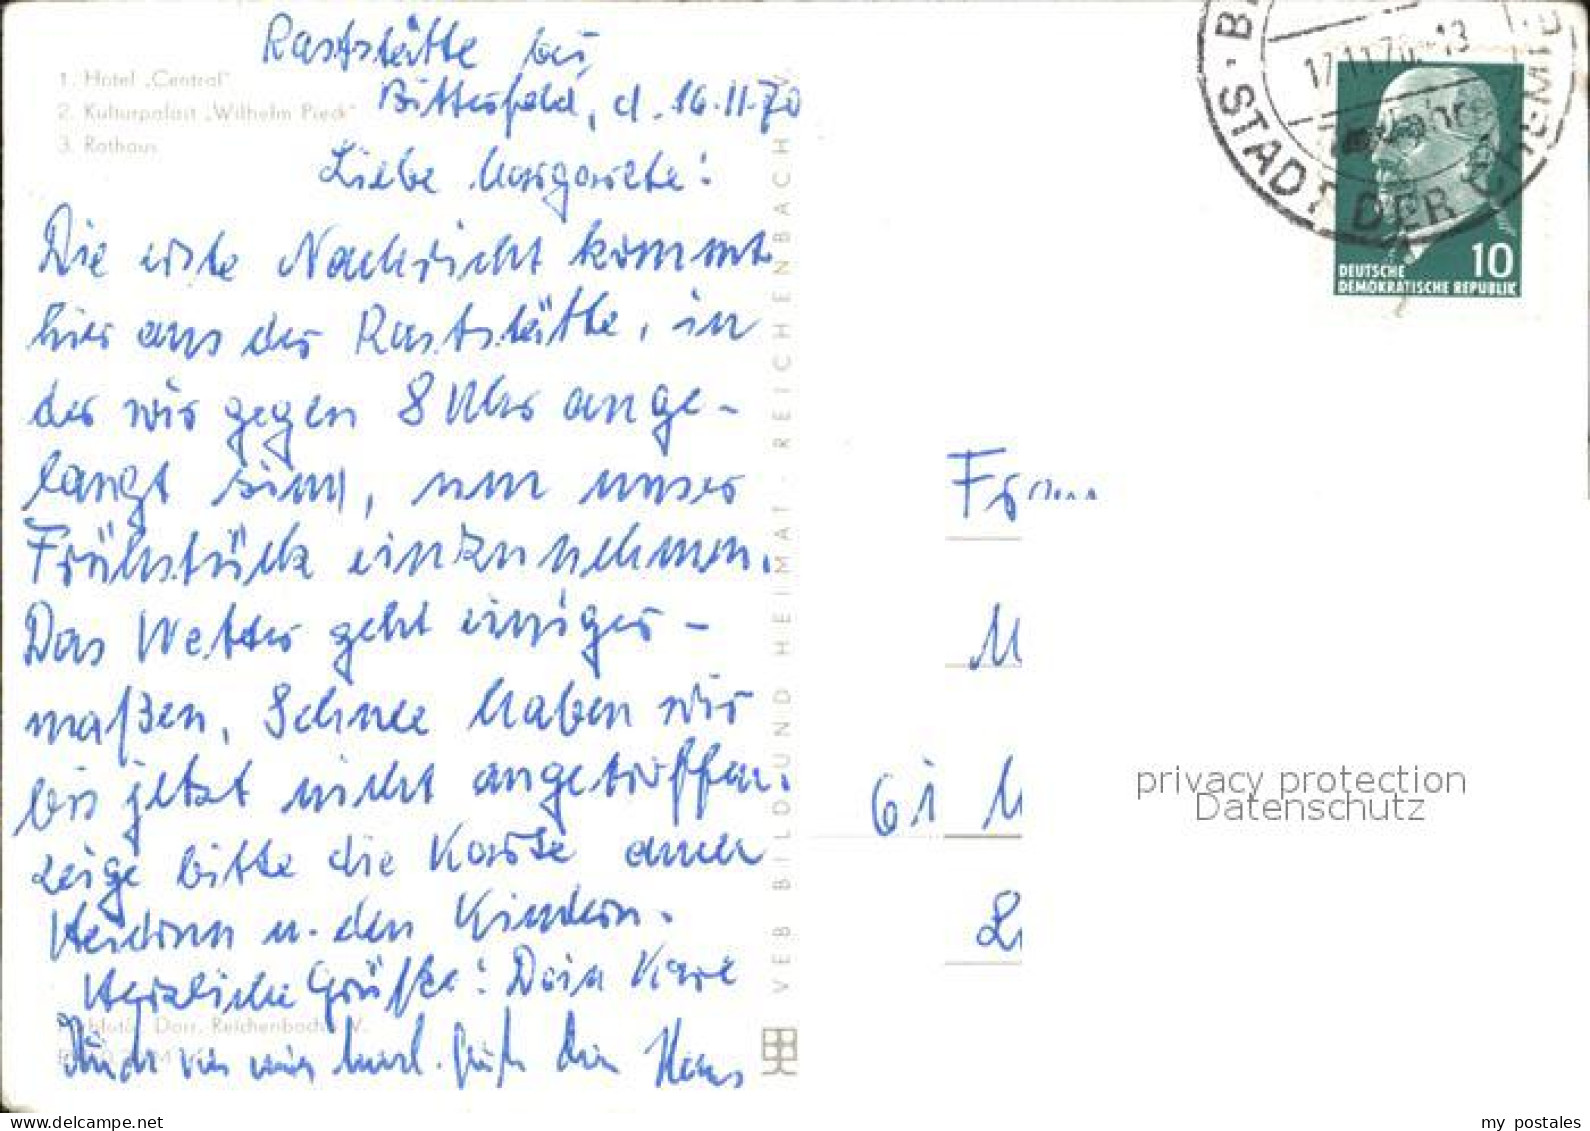 Raststätte bei
Bitterfeld, d. 16.11.70
1. Hotel „Central"
2. Kulturpalast „Wilhelm Pieck"
3. Rathaus
Liebe Margarete!
Die erste Nachricht kommt
hier aus der Raststätte, in
der wir gegen 8 Uhr ange-
langt sind, um unser
Frühstück einzunehmen.
Das Wetter geht einiger-
maßen, Schnee haben wir
bis jetzt nicht angetroffen.
Zeige bitte die Karte auch
u. den Kindern.
Herzliche Grüße! Dein Karl
Auch von mir herzl. Grüße Hans
Reichenbach V.
VEB BILD UND HEIMAT REICHENBACH V.
17.11.70-13
STADT DER CHEMIE
DEUTSCHE
DEMOKRATISCHE REPUBLIK
10
Frau
M
61 M
privacy protection
Datenschutz
my postales